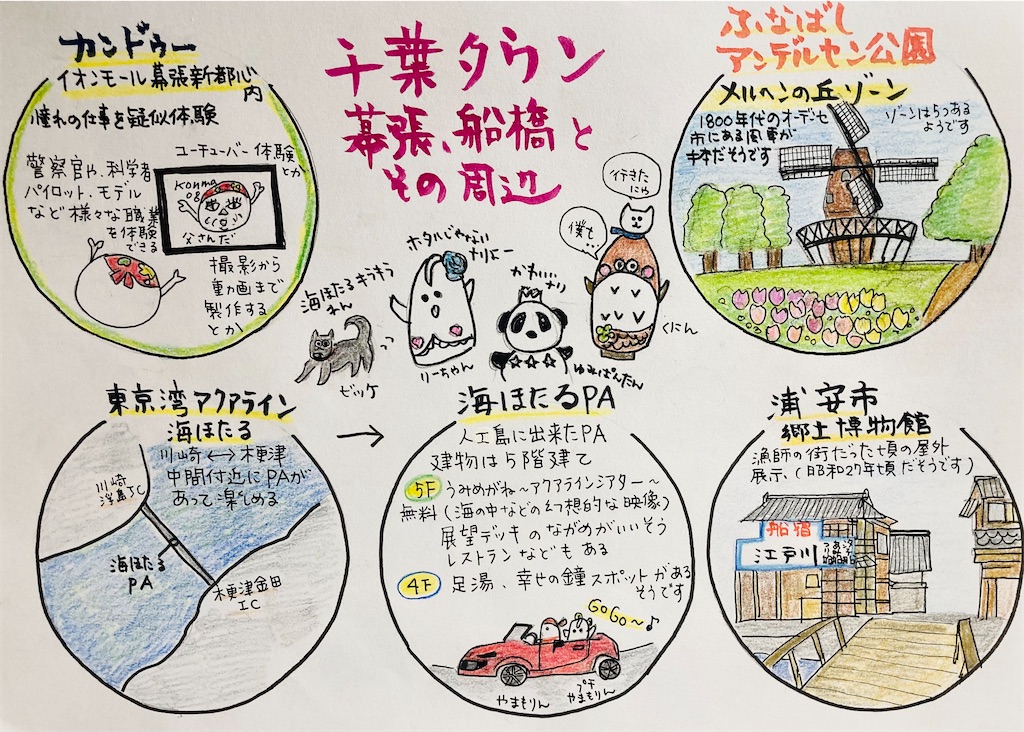 千葉タウン
幕張、船橋と
その周辺
カンドゥー
イオンモール幕張新都心
内
憧れの仕事を疑似体験
警察官や、科学者
パイロット、モデル
など様々な職業
を体験
できる
ユーチューバー体験
とか
父さんだ
撮影から
動画まで
製作する
とか
ふなばし
アンデルセン公園
メルヘンの丘ゾーン
1800年代のオーデンセ
市にある風車が
手本だそうです
ゾーンは5つある
ようです
行きた
にゃ
僕も
ホタルじゃない
ナリよー
かわいい
ナリ
海ほたるキラキラ
わん
ビッケ
りーちゃん
ゆみぱんたん
くにん
東京湾アクアライン
海ほたる
川崎⟷木更津
中間付近にPAが
あって楽しめる
川崎
浮島JC
海ほたる
PA
木更津金田
IC
→
海ほたるPA
人工島に出来たPA
建物は5階建て
5F うみめがね~アクアラインシアター~
無料(海の中などの幻想的な映像)
展望デッキのながめがいいそう
レストランなどもある
4F 足湯、幸せの鐘スポットがある
そうです
GoGo~♪
やまもりん
プチ
やまもりん
浦安市
郷土博物館
漁師の街だった頃の屋外
展示、(昭和27年頃だそうです)
船宿
江戸川